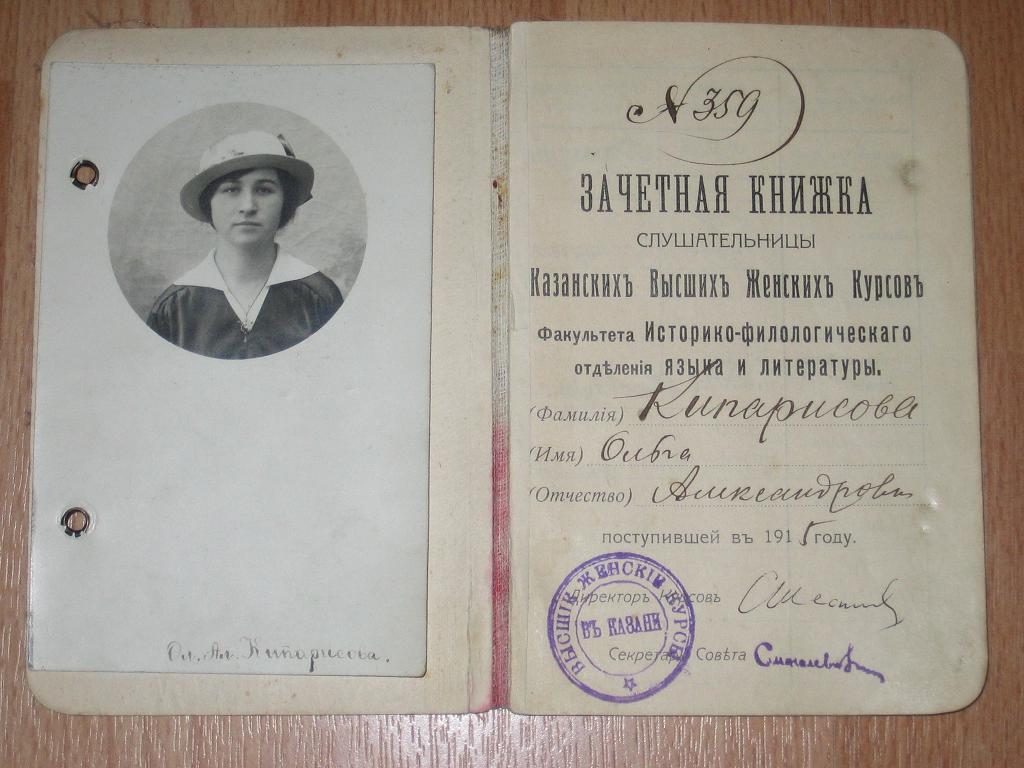 Ол. Ал. Кипарисова.
№ 359
ЗАЧЕТНАЯ КНИЖКА
СЛУШАТЕЛЬНИЦЫ
Казанскихъ Высшихъ Женскихъ Курсовъ
Факультета Историко-филологическаго
отдѣленія языка и литературы.
(Фамилія) Кипарисова
(Имя) Ольга
(Отчество) Александровн
поступившей въ 1915 году.
Директоръ Курсовъ
Секретарь Совѣта
ВЫСШІЕ ЖЕНСКІЕ КУРСЫ
ВЪ КАЗАНИ